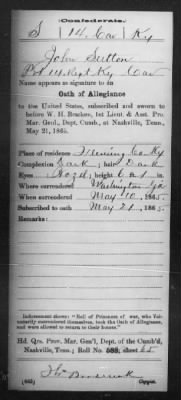 Confederate.
S | 14 Cav | Ky
John Sutton
Pvt 14 Regt Ky Cav
Name appears as signature to an
Oath of Allegiance
to the United States, subscribed and sworn to
before W. H. Bracken, 1st Lieut. & Asst. Pro.
Mar. Genl., Dept. Cumb., at Nashville, Tenn.,
May 21, 1865.
Place of residence Fleming Co Ky
Complexion Dark; hair Dark
Eyes Hazel; height 6 ft 1 in.
Where surrendered Washington Ga
When surrendered May 10, 1865.
Subscribed to oath May 21, 1865
Remarks:
Indorsement shows: "Roll of Prisoners of war, who Vol-
untarily surrendered themselves, took the Oath of Allegiance,
and were allowed to return to their homes."
Hd. Qrs. Prov. Mar. Gen'l, Dept. of the Cumb'd,
Nashville, Tenn.; Roll No. 588; sheet 65
(665)
Copyist.